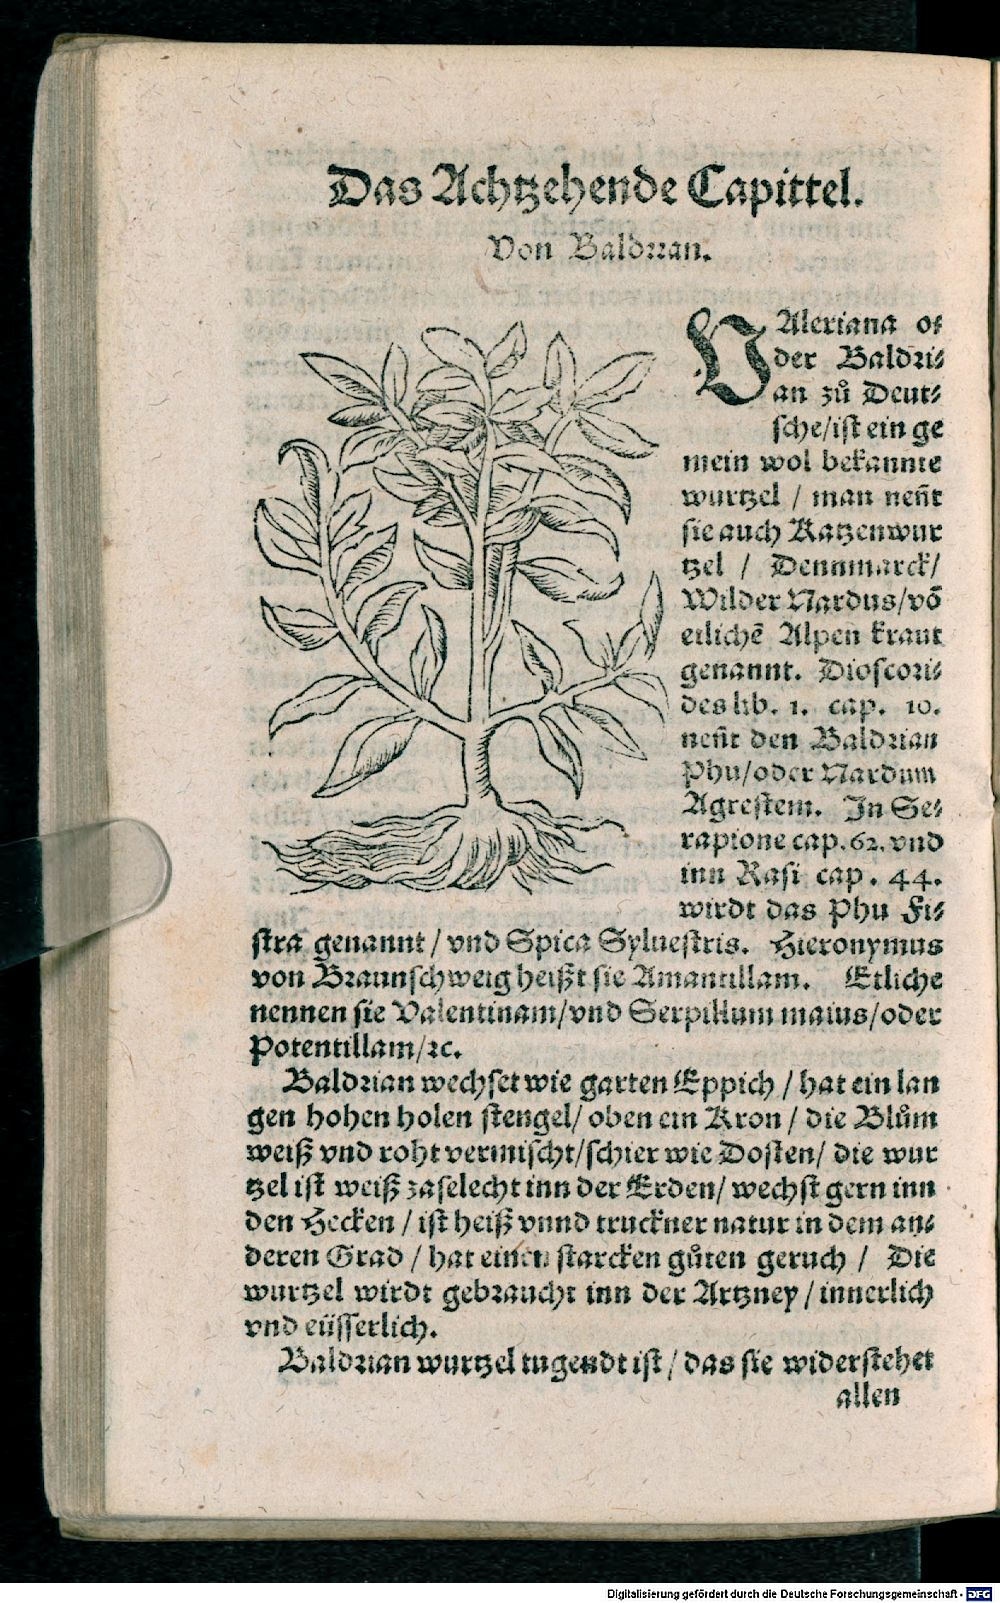 Das Achtzehende Capittel.
Von Baldrian.
VAleriana o⸗
der Baldri⸗
an zů Deut⸗
sche/ist ein ge
mein wol bekannte
wurtzel / man neñt
sie auch Katzenwur
tzel / Dennmarck/
Wilder Nardus/võ
etlichẽ Alpen kraut
genannt. Dioscori⸗
des lib. 1. cap. 10.
neñt den Baldrian
Phu/oder Nardum
Agrestem. In Se⸗
rapione cap. 62. vnd
inn Rasi cap. 44.
wirdt das Phu Fi⸗
stra genannt / vnd Spica Syluestris. Hieronymus
von Braunschweig heißt sie Amantillam. Etliche
nennen sie Valentinam/vnd Serpillum maius/oder
Potentillam/ꝛc.
Baldrian wechset wie garten Eppich / hat ein lan
gen hohen holen stengel/ oben ein Kron / die Blům
weiß vnd roht vermischt/schier wie Dosten/ die wur
tzel ist weiß zaselecht inn der Erden/ wechst gern inn
den Hecken / ist heiß vnnd truckner natur in dem an⸗
deren Grad / hat einen starcken gůten geruch / Die
wurtzel wirdt gebraucht inn der Artzney / innerlich
vnd eüsserlich.
Baldrian wurtzel tugendt ist / das sie widerstehet
allen
Digitalisierung gefördert durch die Deutsche Forschungsgemeinschaft - DFG